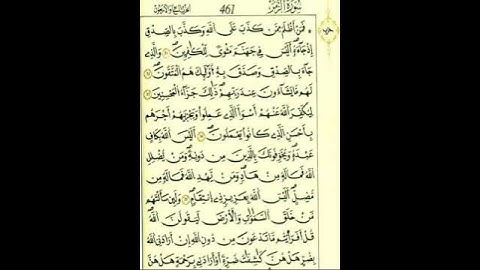 سُورَةُ الزُّمَرِ 461 الجزء الرابع والعشرون
حزب
فَمَنْ أَظْلَمُ مِمَّن كَذَبَ عَلَى ٱللَّهِ وَكَذَّبَ بِٱلصِّدْقِ
إِذْ جَآءَهُۥٓ أَلَيْسَ فِى جَهَنَّمَ مَثْوًى لِّلْكَٰفِرِينَ وَٱلَّذِى
جَآءَ بِٱلصِّدْقِ وَصَدَّقَ بِهِۦٓ أُو۟لَٰٓئِكَ هُمُ ٱلْمُتَّقُونَ
لَهُم مَّا يَشَآءُونَ عِندَ رَبِّهِمْ ذَٰلِكَ جَزَآءُ ٱلْمُحْسِنِينَ
لِيُكَفِّرَ ٱللَّهُ عَنْهُمْ أَسْوَأَ ٱلَّذِى عَمِلُوا۟ وَيَجْزِيَهُمْ أَجْرَهُم
بِأَحْسَنِ ٱلَّذِى كَانُوا۟ يَعْمَلُونَ أَلَيْسَ ٱللَّهُ بِكَافٍ
عَبْدَهُۥ وَيُخَوِّفُونَكَ بِٱلَّذِينَ مِن دُونِهِۦ وَمَن يُضْلِلِ
ٱللَّهُ فَمَا لَهُۥ مِنْ هَادٍ وَمَن يَهْدِ ٱللَّهُ فَمَا لَهُۥ مِن
مُّضِلٍّ أَلَيْسَ ٱللَّهُ بِعَزِيزٍ ذِى ٱنتِقَامٍ وَلَئِن سَأَلْتَهُم
مَّنْ خَلَقَ ٱلسَّمَٰوَٰتِ وَٱلْأَرْضَ لَيَقُولُنَّ ٱللَّهُ
قُلْ أَفَرَءَيْتُم مَّا تَدْعُونَ مِن دُونِ ٱللَّهِ إِنْ أَرَادَنِىَ ٱللَّهُ
بِضُرٍّ هَلْ هُنَّ كَٰشِفَٰتُ ضُرِّهِۦٓ أَوْ أَرَادَنِى بِرَحْمَةٍ هَلْ هُنَّ